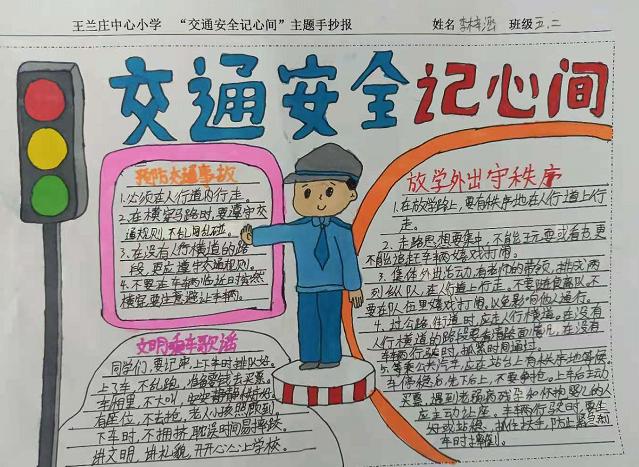 王兰庄中心小学 “交通安全记心间”主题手抄报 姓名 班级五.二
交通安全记心间
预防交通事故
1.必须在人行道内行走。
2.在横穿马路时,要遵守交
通规则,不乱闯乱碰。
3.在没有人行横道的路
段,更应遵守交通规则。
4.不要在车辆临近时突然
横穿,要注意避让车辆。
文明乘车歌谣
同学们,要记牢,上下车时排队好。
上了车,不乱跑,准备零钱去买票。
车厢里,不大叫,安安静静
有座位,不去抢,老人小孩照顾到。
下车时,不拥挤,耽误时间易摔跌。
讲文明,讲礼貌,开开心心上学校。
放学外出守秩序
1.在放学路上,要有秩序地在人行道上行
走。
2.走路思想要集中,不能
不能追赶车辆嬉戏打闹。
3.集体外出活动有老师的带领,排成两
列纵队,在人行道上行走。不要随意离队,不
要在队伍里嬉戏打闹,以免影响他人通行。
4.过公路,街道时,应走人行横道。在没有
人行横道的路段要看清
车辆行驶时,抓紧时间通过。
5.等乘公共汽车,应在站台上有秩序地等候。
车停稳后,先下后上,不要争抢。上车后主动
买票,遇到老弱病残孕和怀抱婴儿的人
应主动让座。车辆行驶时,要坐
好或站稳,抓住扶手,防止紧急刹
车时摔倒。